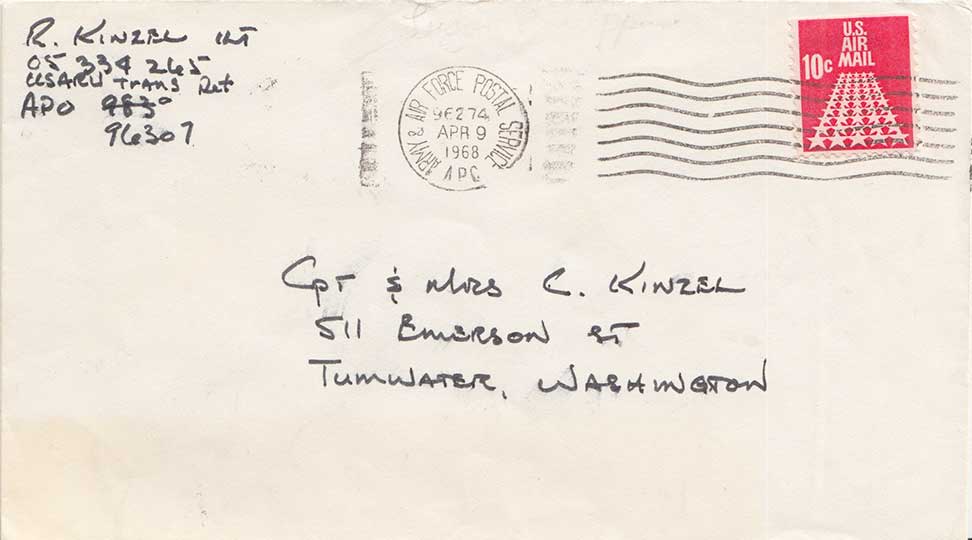 R. KINZEL 1LT
05 334 265
USARV TRANS Det
APO 9830
96307
ARMY & AIR FORCE POSTAL SERVICE
96274
APR 9
1968
APO
U.S.
AIR
MAIL
10c
Cpt & Mrs C. KINZEL
511 EMERSON ST
TUMWATER, WASHINGTON